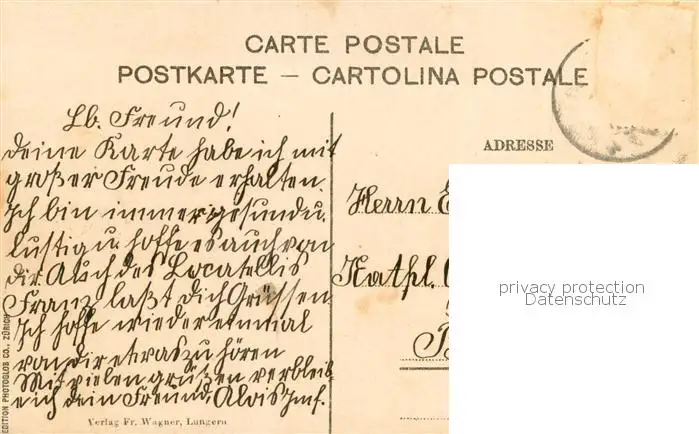 CARTE POSTALE
POSTKARTE — CARTOLINA POSTALE
Lb. Freund!
Deine Karte habe ich mit
großer Freude erhalten.
Ich bin immer gesund u.
lustig u. hoffe es auch von
dir. Auch des Locatellis
Franz laßt dich Grüssen
Ich hoffe wieder einmal
von dir etwas zu hören
Mit vielen grüßen verbleib
e ich dein Freund, Alois Jmf.
Verlag Fr. Wagner, Lungern
EDITION PHOTOGLOB CO., ZÜRICH
ADRESSE
Herrn
Kathl.
privacy protection
Datenschutz